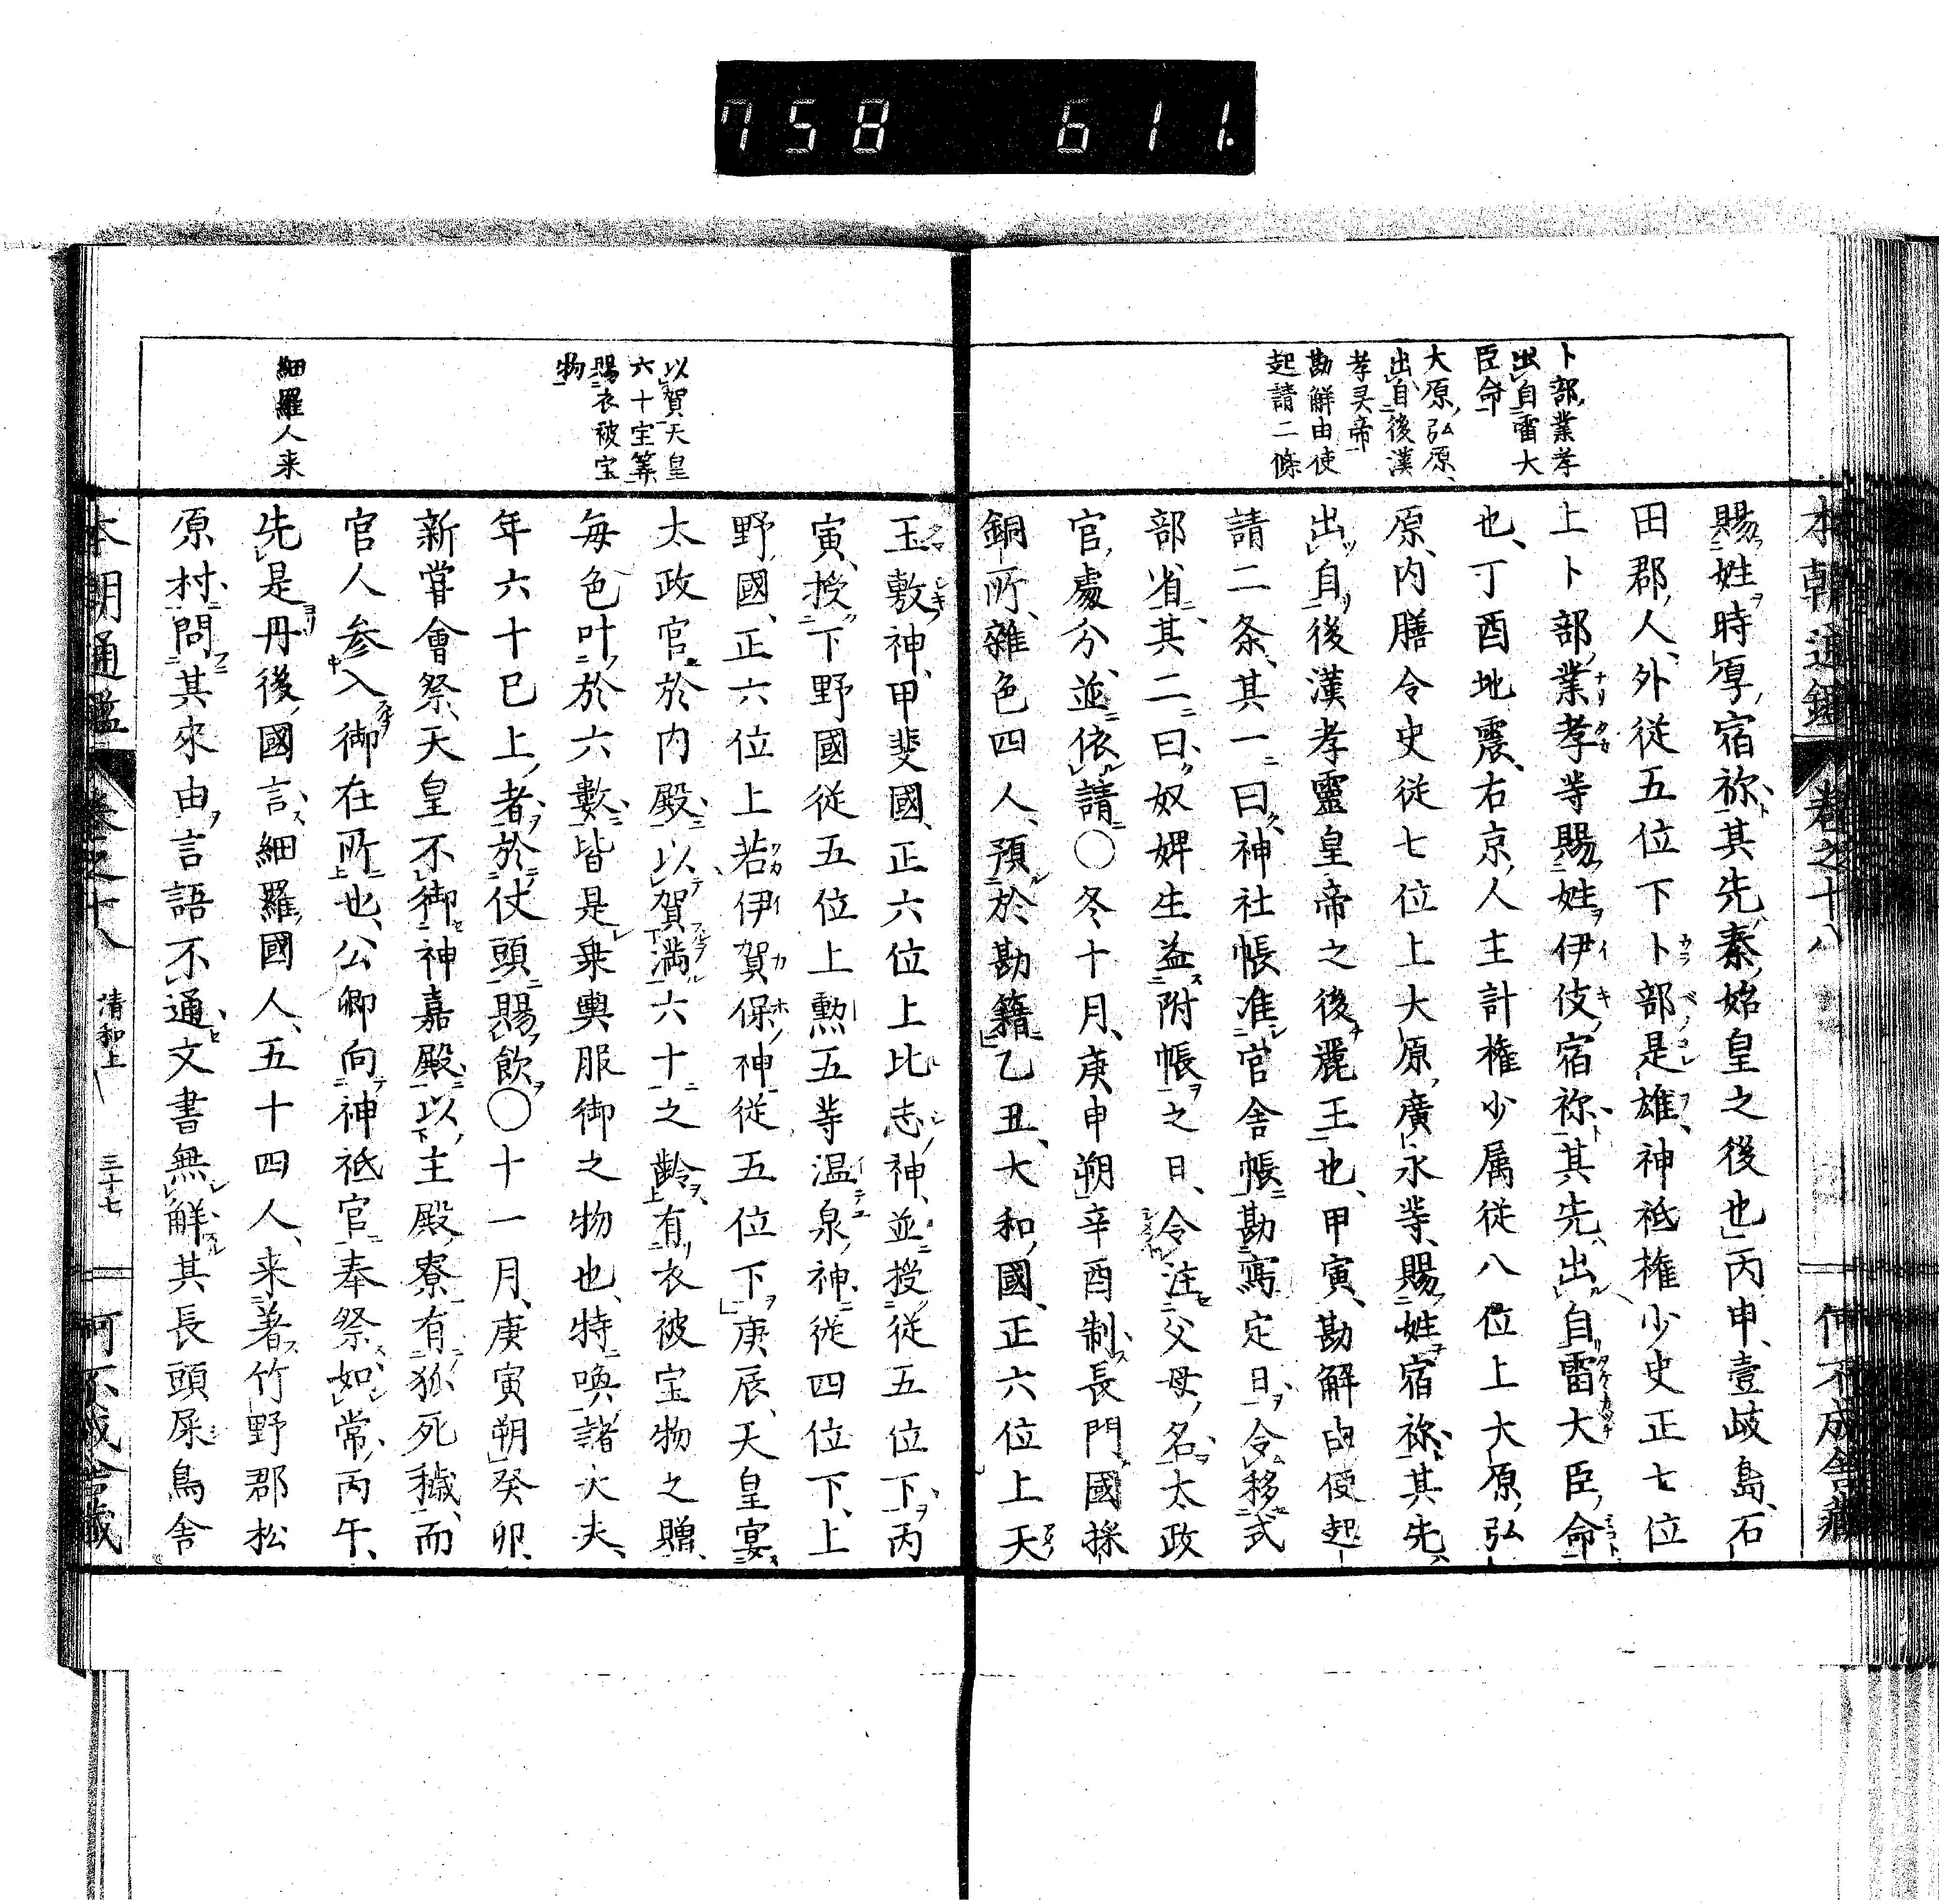 758 611.
本朝通鑑 卷之十八 何不成舎藏
卜部業孝
出自雷大
臣命
大原弘原、
出自後漢
孝灵帝
勘解由使
起請二條
賜姓時厚宿祢其先秦始皇之後也丙申、壹歧島、石
田郡人、外從五位下卜部是雄、神祇權少史正七位
上卜部業孝等賜姓伊伎宿祢其先、出自雷大臣命
也、丁酉地震、右京人主計權少属從八位上大原弘
原、内膳令史從七位上大原廣永等、賜姓宿祢、其先、
出自後漢孝靈皇帝之後麗王也、甲寅、勘解由使起
請二条、其一曰、神社帳准官舎帳勘寫定日、令移式
部省、其二曰、奴婢生益附帳之日、令注父母名、太政
官處分、並依請〇冬十月、庚申朔辛酉制、長門國採
銅所、雜色四人、預於勘籍乙丑、大和國、正六位上天
以賀天皇
六十宝算
賜衣被宝
物
細羅人来
玉敷神、甲斐國、正六位上比志神、並授從五位下、丙
寅、授下野國從五位上勲五等温泉神從四位下、上
野國、正六位上若伊賀保神從五位下庚辰、天皇宴
太政官於内殿、以賀満六十之齡、有衣被宝物之贈、
每色叶於六數、皆是乗輿服御之物也、特喚諸大夫、
年六十已上者、於仗頭賜飲〇十一月、庚寅朔癸卯、
新甞會祭、天皇不御神嘉殿、以主殿寮有狐死穢、而
官人参入御在所也、公卿向神祇官奉祭如常、丙午、
先是丹後國言、細羅國人、五十四人、来著竹野郡松
原村、問其來由、言語不通文書無觧其長頭屎鳥舎
本朝通鑑 卷之十八 清和上 三十七 何不成舎藏